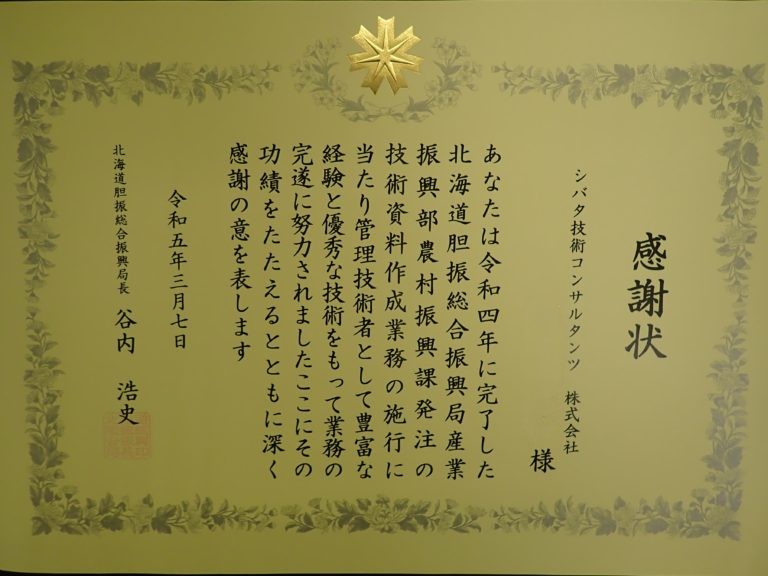 感謝状
シバタ技術コンサルタンツ 株式会社
様
あなたは令和四年に完了した
北海道胆振総合振興局産業
振興部農村振興課発注の
技術資料作成業務の施行に
当たり管理技術者として豊富な
経験と優秀な技術をもって業務の
完遂に努力されましたここにその
功績をたたえるとともに深く
感謝の意を表します
令和五年三月七日
北海道胆振総合振興局長 谷内 浩史